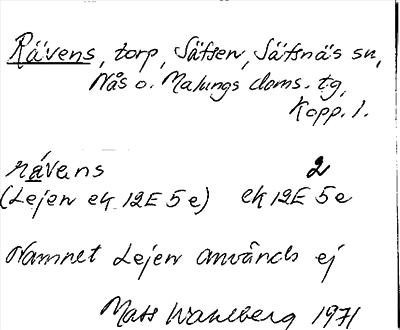 Rävens, torp, Säfsen, Säfsnäs sn,
Nås o. Malungs doms. tg,
Kopp. l.
rä́vens 2
(Lejen ek 12E 5e) ek 12E 5e
Namnet Lejen används ej
Mats Wahlberg 1971